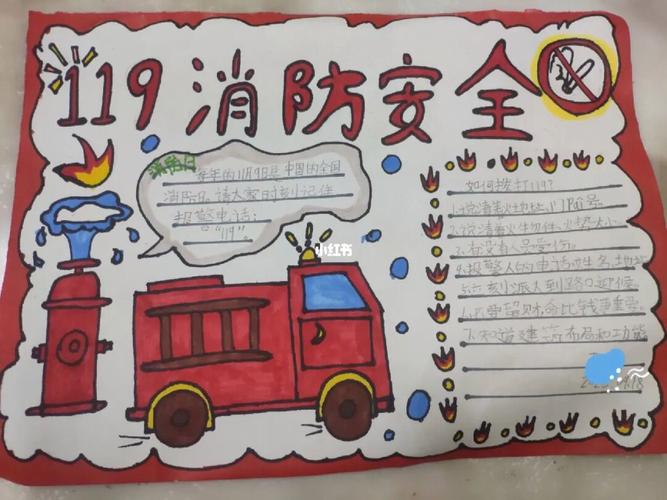 119消防安全
消防日
每年的11月9日是中国的全国
消防日。请大家时刻记住
报警电话:
"119"。
小红书
如何拨打119?
1.说清着火地址,门牌号
2.说清着火物体,火势大小
3.有没有人员受伤
4.报警人的电话,姓名,地址
5.立刻派人到路口迎候
命比钱重要
7.知道建筑布局和功能